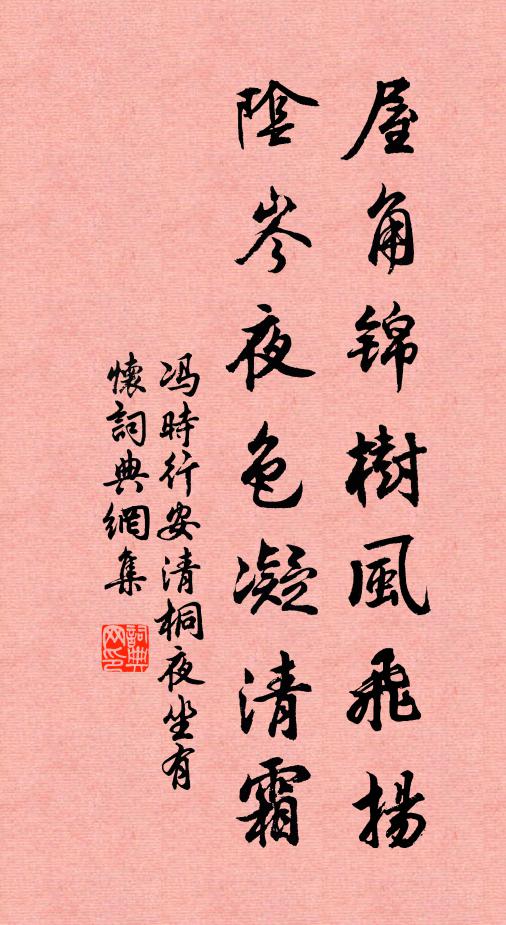 屋角錦樹風飛揚
陰岑夜色凝清霜
冯時行安清桐夜坐有
懷詞典網集
詞典网印